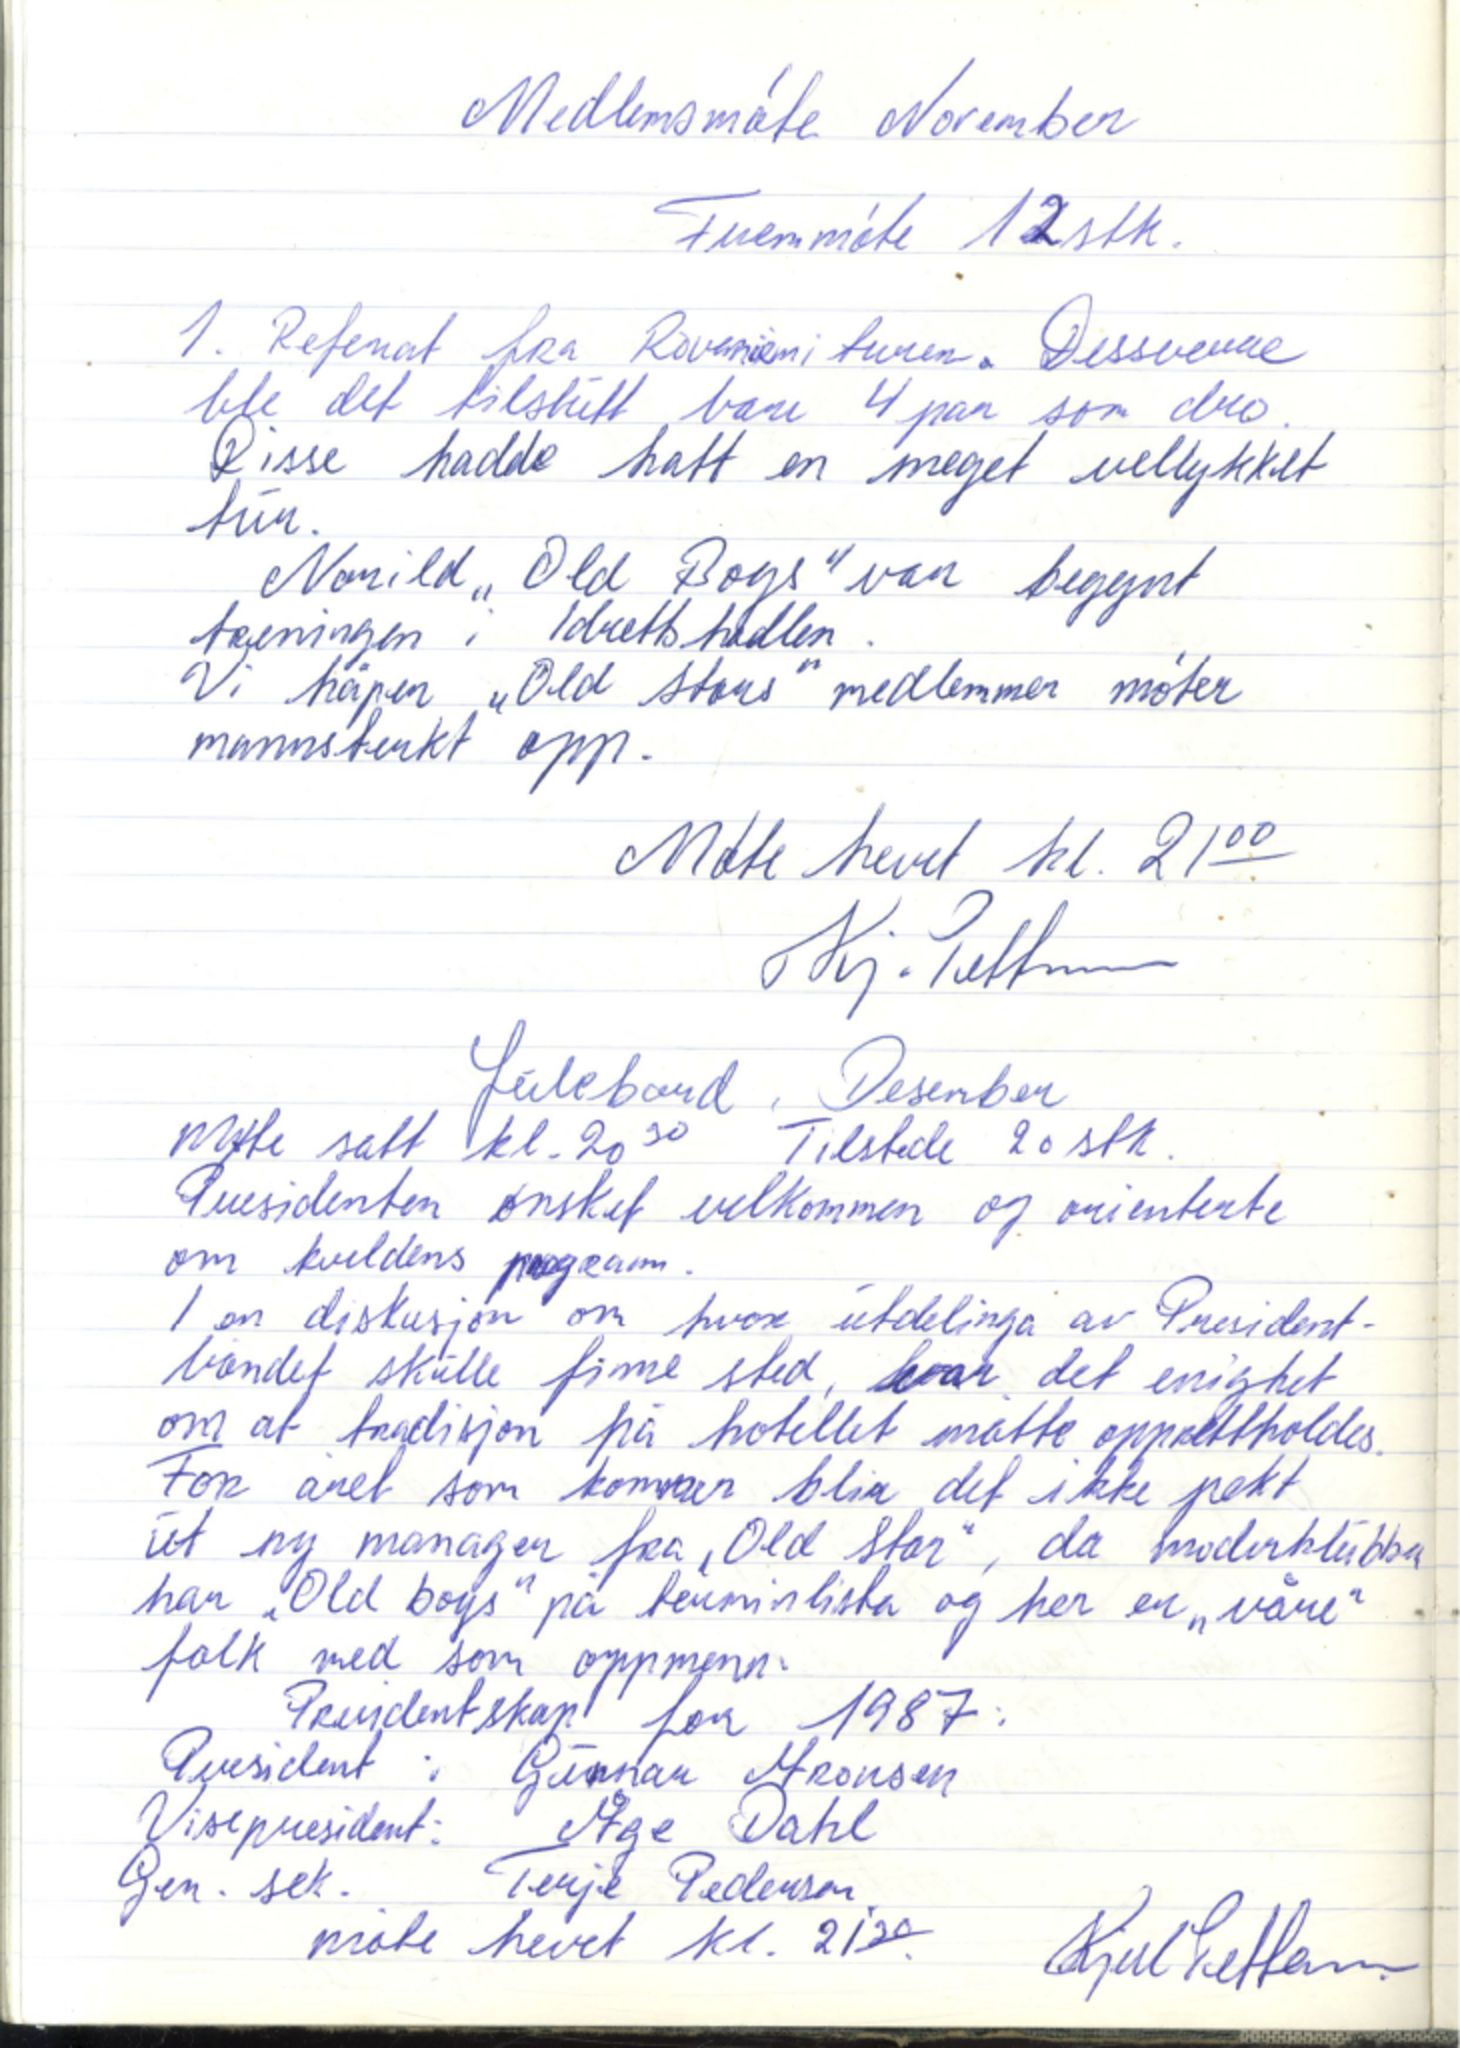 Medlemsmøte November
Fremmøte 12 stk.
1. Referat fra Rovaniemi turen. Dessverre
ble det tilslutt bare 4 par som dro.
Disse hadde hatt en meget vellykket
tur.
Norild „Old Boys" var begynt
treningen i Idrettshallen.
Vi håper „Old Stars" medlemmer møter
mannsterkt opp.
Møte hevet kl. 21⁰⁰
Kj.
Julebord, Desember
Møte satt kl. 20³⁰ Tilstede 20 stk.
Presidenten ønsket velkommen og orienterte
om kveldens program.
I en diskusjon om hvor utdelinga av President-
båndet skulle finne sted, var det enighet
om at tradisjon på hotellet måtte opprettholdes.
For året som kommer blir det ikke pekt
ut ny manager fra „Old Star", da moderklubben
har „Old boys" på terminlista og her er „våre"
folk med som oppmenn.
Presidentskap for 1987:
President : Gunnar Aronsen
Visepresident: Åge Dahl
Gen. sek. Terje Pedersen
møte hevet kl. 21³⁰
Kjell